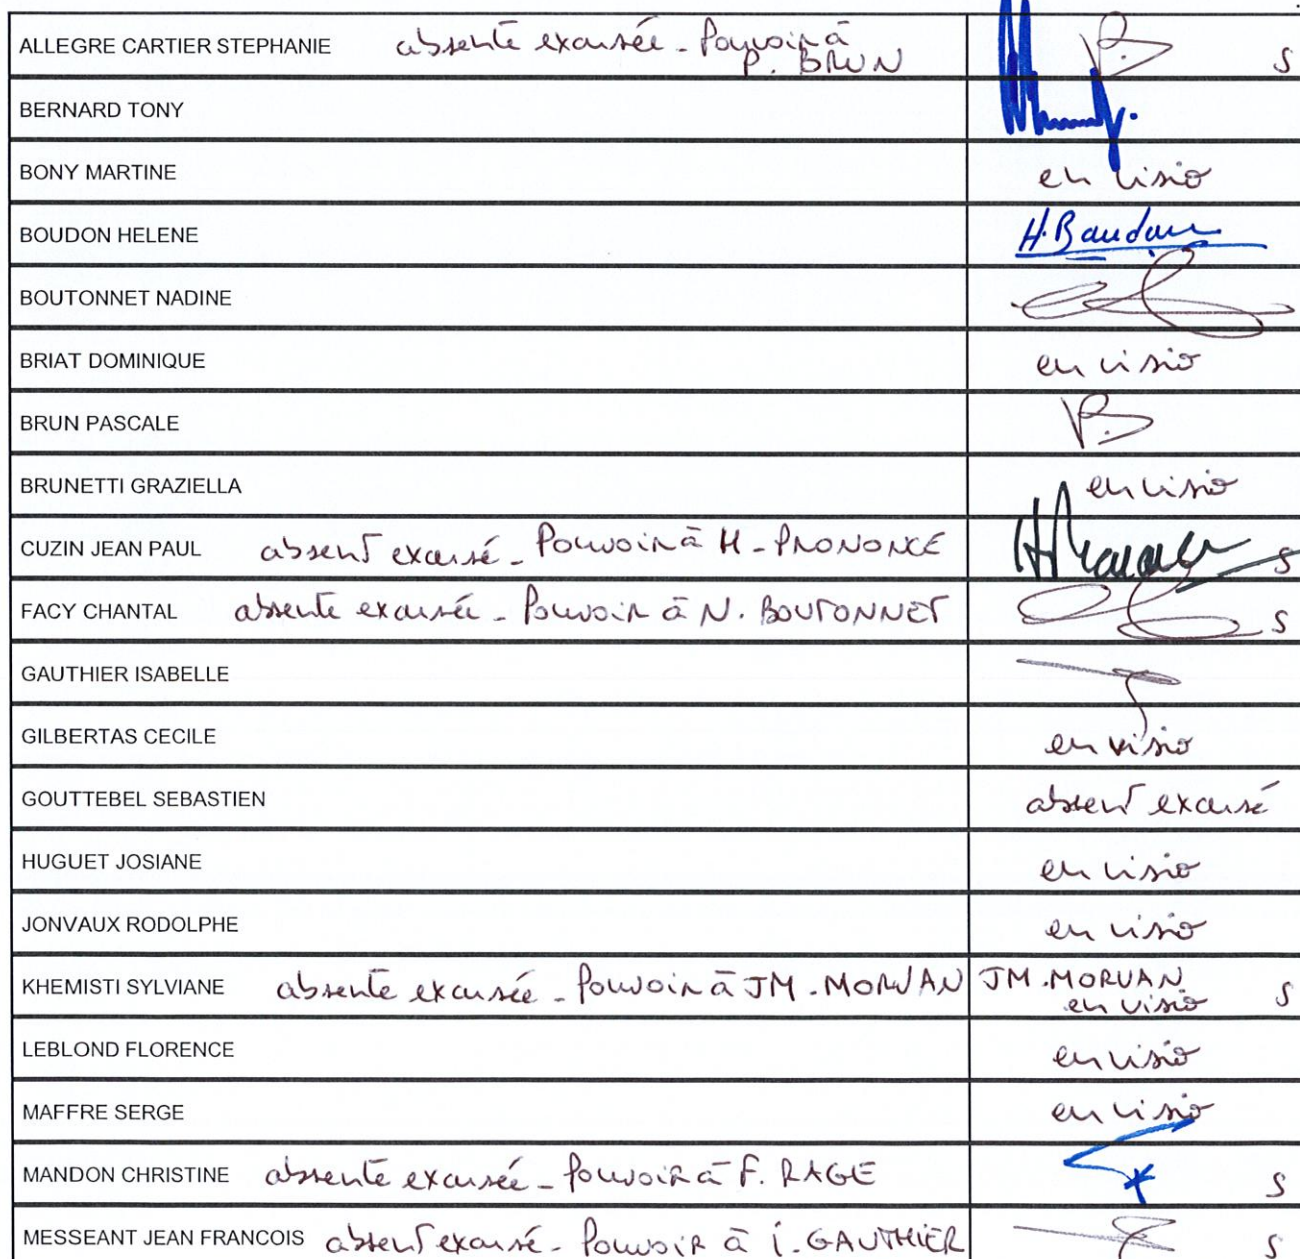 ALLEGRE CARTIER STEPHANIE absente excusée - Pouvoir à
P. BRUN S
BERNARD TONY
BONY MARTINE en visio
BOUDON HELENE H. Boudon
BOUTONNET NADINE
BRIAT DOMINIQUE en visio
BRUN PASCALE
BRUNETTI GRAZIELLA en visio
CUZIN JEAN PAUL absent excusé - Pouvoir à H - PRONONCE S
FACY CHANTAL absente excusée - Pouvoir à N. BOUTONNET S
GAUTHIER ISABELLE
GILBERTAS CECILE en visio
GOUTTEBEL SEBASTIEN absent excusé
HUGUET JOSIANE en visio
JONVAUX RODOLPHE en visio
KHEMISTI SYLVIANE absente excusée - Pouvoir à JM . MORVAN JM . MORVAN
en visio S
LEBLOND FLORENCE en visio
MAFFRE SERGE en visio
MANDON CHRISTINE absente excusée - Pouvoir à F. RAGE S
MESSEANT JEAN FRANCOIS absent excusé - Pouvoir à I. GAUTHIER S